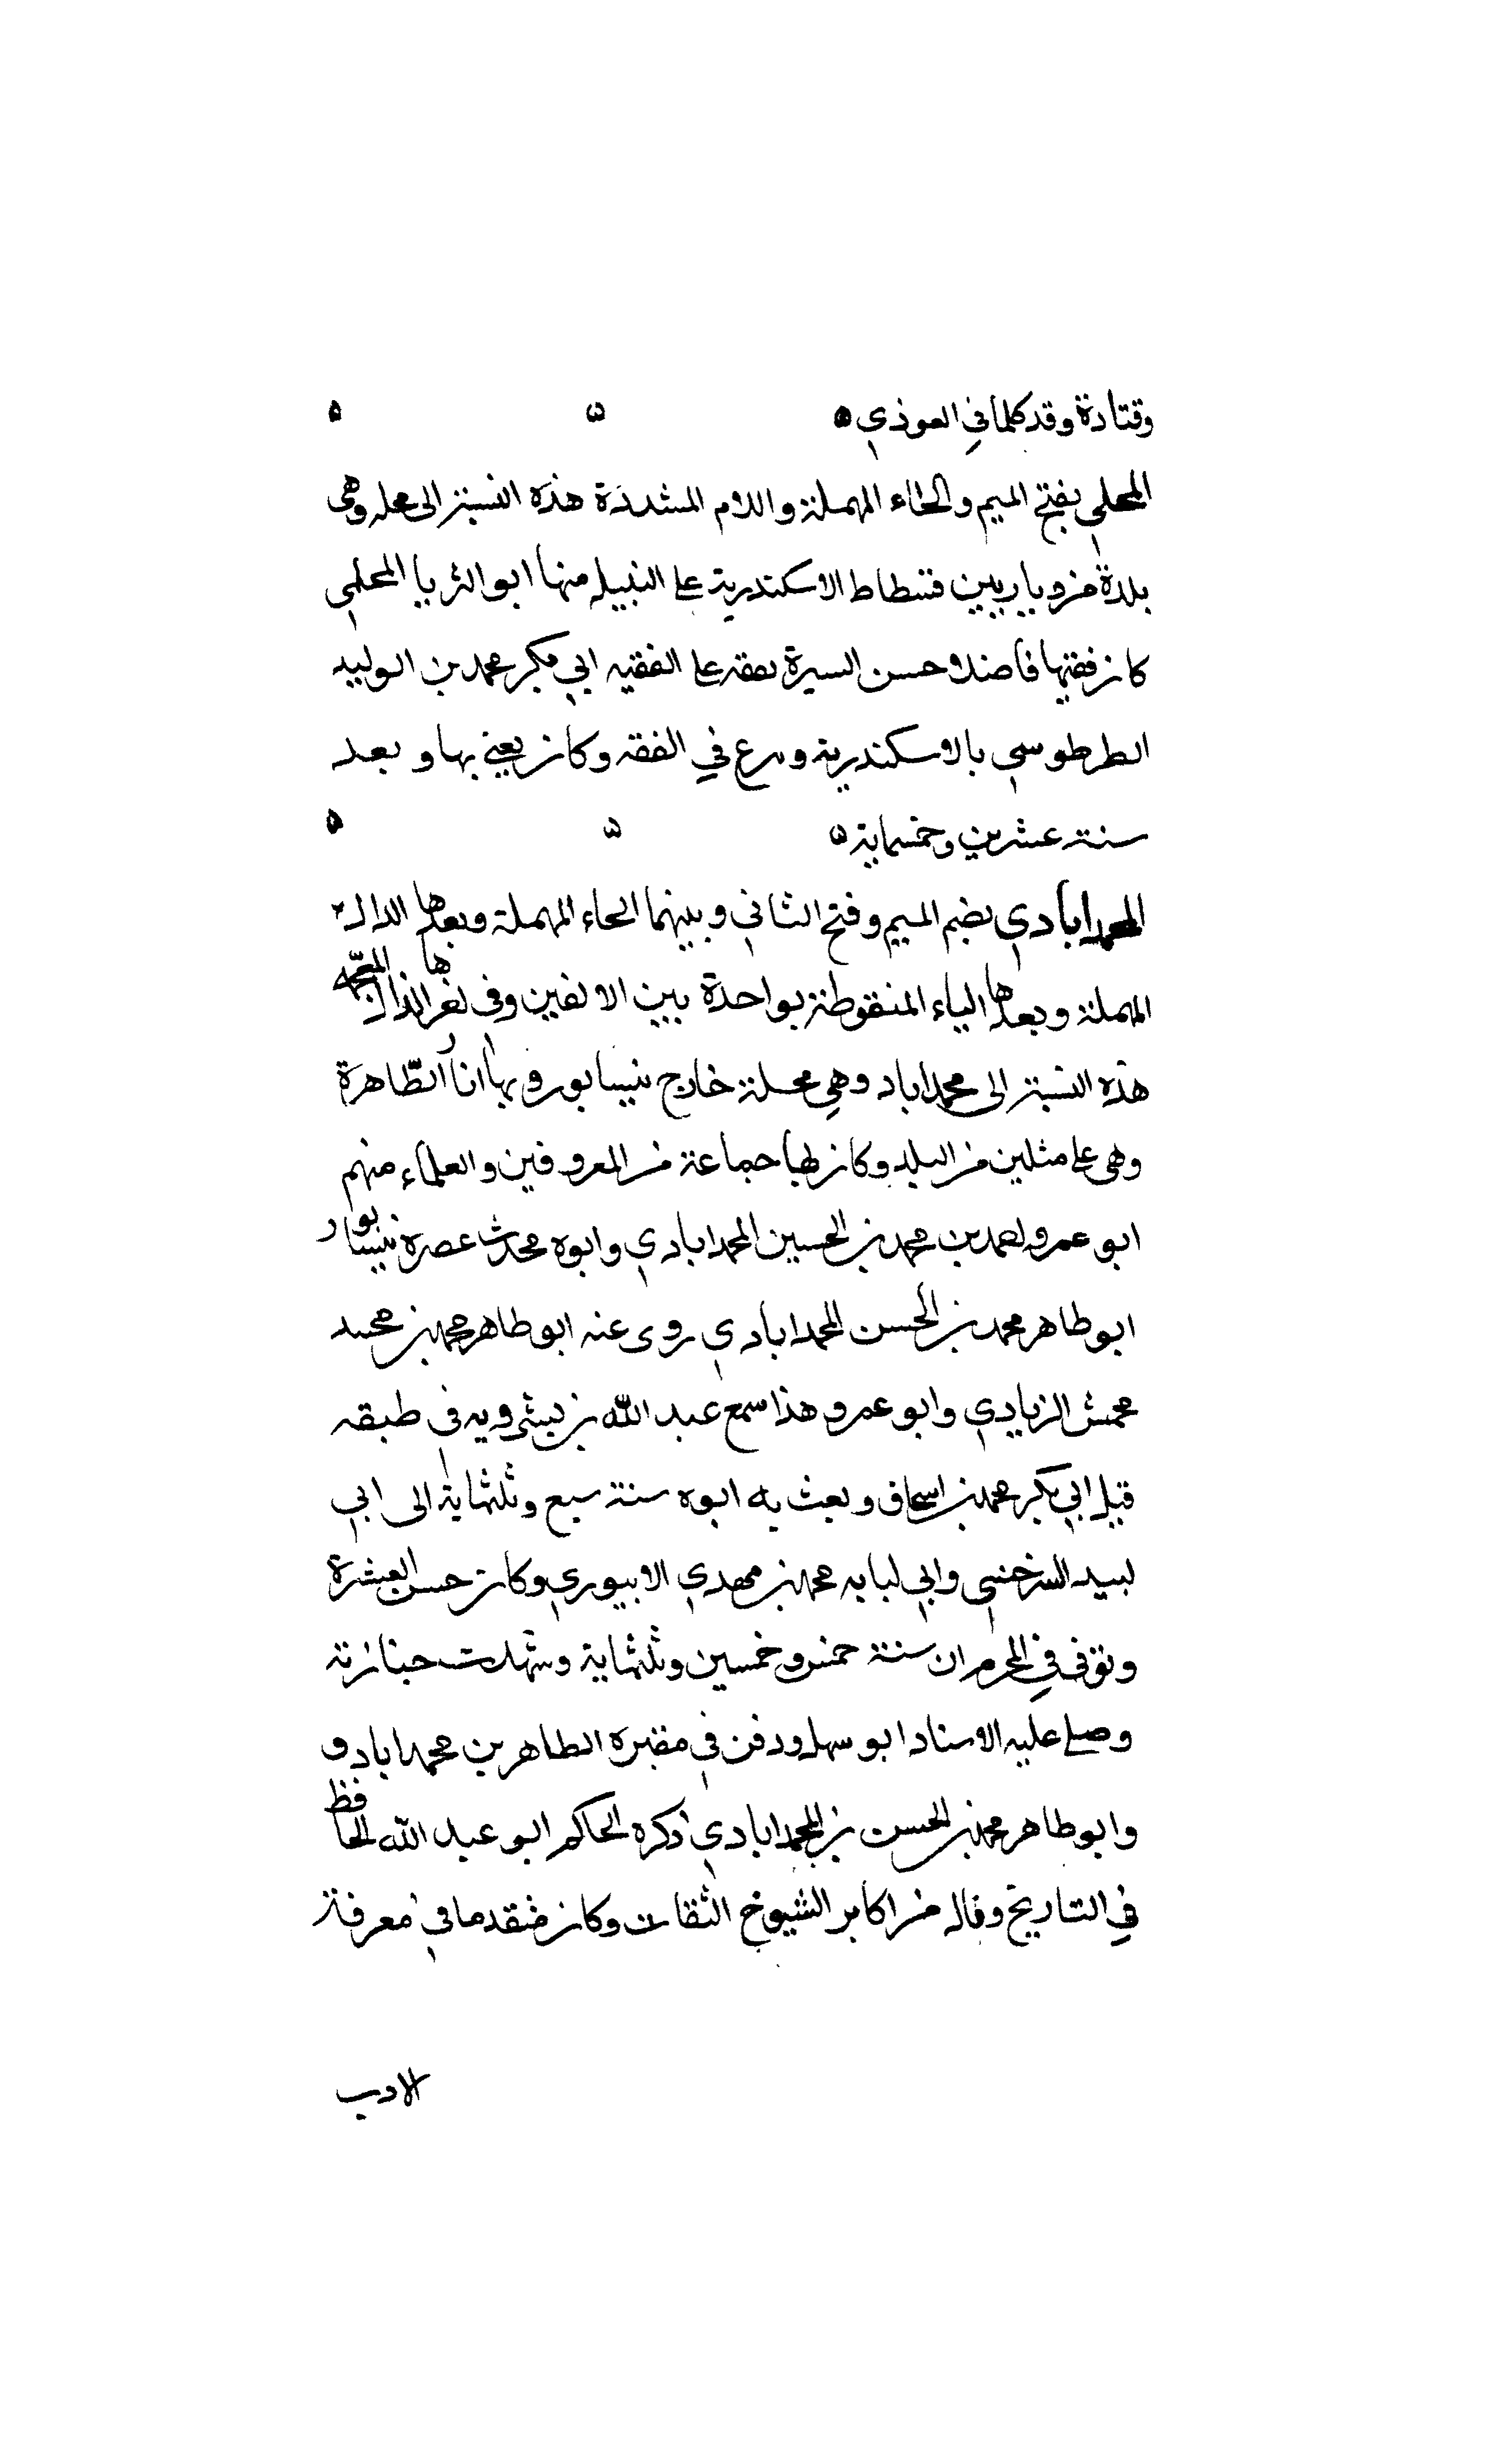 وقتادة وقد كلما في العوذي ه ه ه
المحلي بفتح الميم والحاء المهملة واللام المشددة هذه النسبة الى محله وهى
بلدة من ديار بين فسطاط الاسكندرية على النيل منها ابو الثريا المحلمي
كان فقيها فاضلا حسن السيرة تفقه على الفقيه ابي بكر محمد بن الوليد
الطرطوسي بالاسكندرية وبرع في الفقه وكان يعني بها وبعد
سنة عشرين وخمسماية ه ه ه
المحمداباذي بضم الميم وفتح الثاني وبينهما الحاء المهملة وبعدها الدال
المهملة وبعدها الباء المنقوطة بواحدة بين الالفين وفى اخرها الذال المعجمة
هذه النسبة الى محمداباد وهي محلة خارج نيسابور وبها انا الطّاهرة
وهى على مثلين من البلد وكان لها جماعة من المعروفين والعلماء منهم
ابو عمرو احمد بن محمد بن الحسين المحمدابادي وابوه محدث عصره نيسابور
ابو طاهر محمد بن الحسن المحمدابادي روى عنه ابو طاهر محمد بن محمد
محمش الزيادي وابو عمرو هذا سمع عبد الله بن بشرويه فى طبقه
قبل ابي بكر محمد بن اسحاق وبعث به ابوه سنة سبع وثلثماية الى ابي
لبيد السرخسي وابي لبابه محمد بن مهدي الابيوردي وكان حسن العشرة
وتوفى في المحرم ان سنة خمس وخمسين وثلثماية وشهدت جنازته
وصلى عليه الاستاد ابو سهل ودفن في مقبرة الطاهرين محمداباد و
وابو طاهر محمد بن الحسن بن المحمدابادي ذكره الحاكم ابو عبد الله الحافظ
في التاريخ وقال من اكابر الشيوخ الثقات وكان متقدما في معرفة
الادب